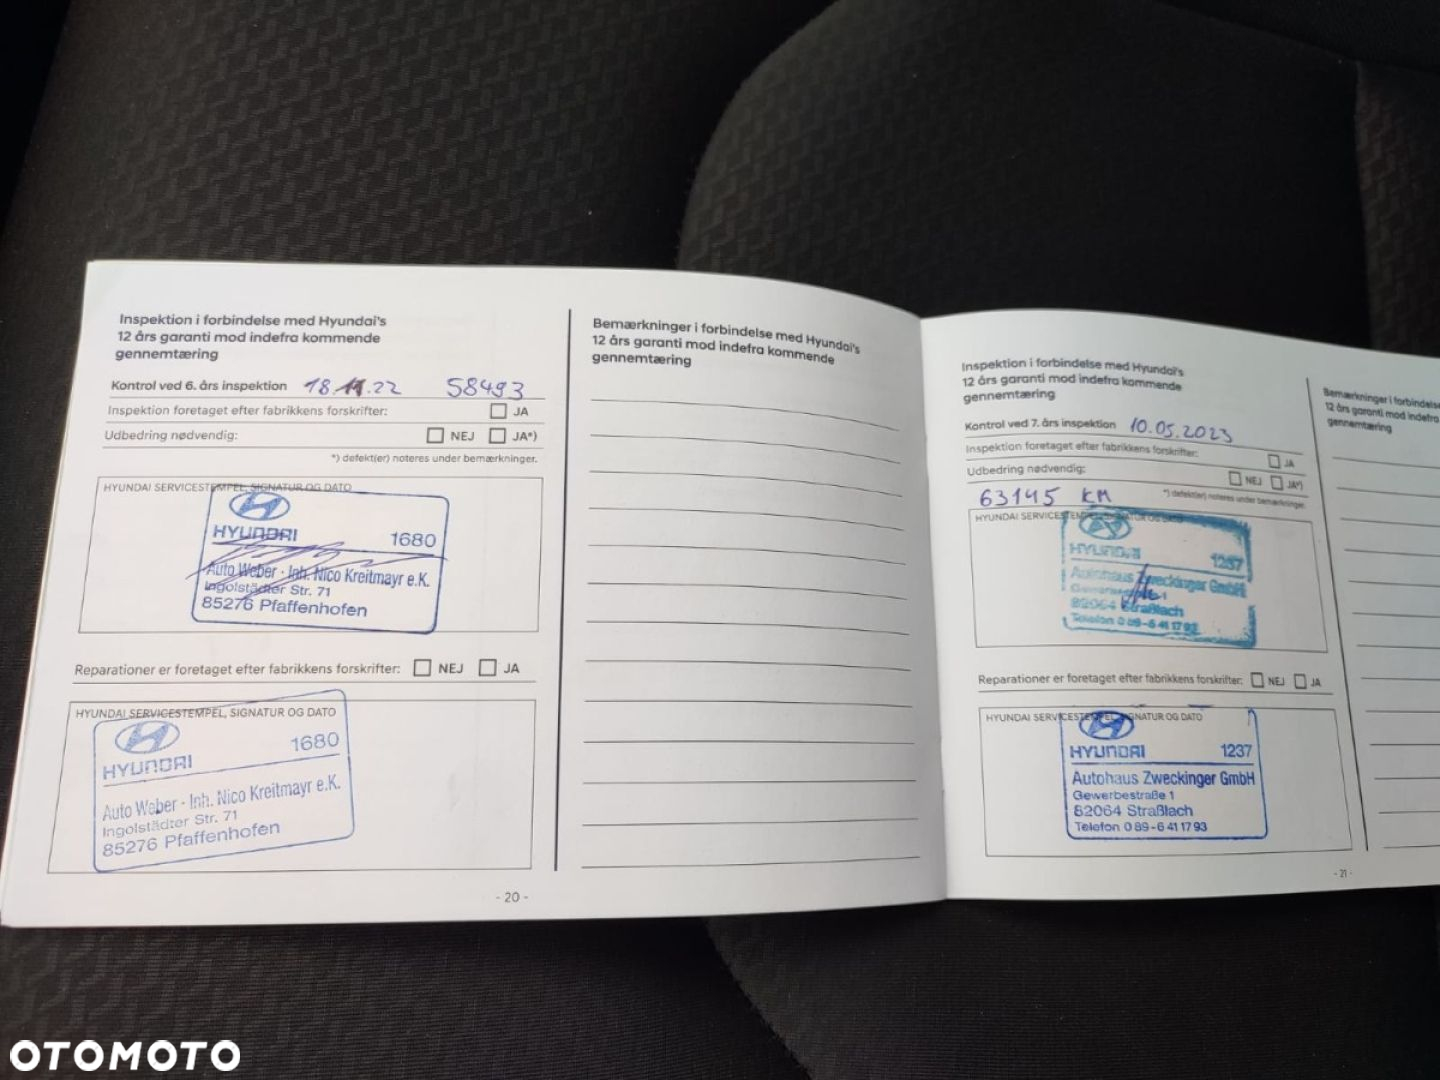 Inspektion i forbindelse med Hyundai's
12 års garanti mod indefra kommende
gennemtæring
Kontrol ved 6. års inspektion 18.11.22 58493
Inspektion foretaget efter fabrikkens forskrifter: JA
Udbedring nødvendig: NEJ JA*)
*) defekt(er) noteres under bemærkninger.
HYUNDAI SERVICESTEMPEL, SIGNATUR OG DATO
HYUNDAI 1680
Auto Weber - Inh. Nico Kreitmayr e.K.
Ingolstädter Str. 71
85276 Pfaffenhofen
Reparationer er foretaget efter fabrikkens forskrifter: NEJ JA
HYUNDAI SERVICESTEMPEL, SIGNATUR OG DATO
HYUNDAI 1680
Auto Weber - Inh. Nico Kreitmayr e.K.
Ingolstädter Str. 71
85276 Pfaffenhofen
- 20 -
Bemærkninger i forbindelse med Hyundai's
12 års garanti mod indefra kommende
gennemtæring
Inspektion i forbindelse med Hyundai's
12 års garanti mod indefra kommende
gennemtæring
Kontrol ved 7. års inspektion 10.05.2023
Inspektion foretaget efter fabrikkens forskrifter: JA
Udbedring nødvendig: NEJ JA*)
63145 KM *) defekt(er) noteres under bemærkninger.
HYUNDAI SERVICESTEMPEL, SIGNATUR OG DATO
HYUNDAI 1237
Autohaus Zweckinger GmbH
Gewerbestraße 1
82064 Straßlach
Telefon 0 89-6 41 17 93
Reparationer er foretaget efter fabrikkens forskrifter: NEJ JA
HYUNDAI SERVICESTEMPEL, SIGNATUR OG DATO
HYUNDAI 1237
Autohaus Zweckinger GmbH
Gewerbestraße 1
82064 Straßlach
Telefon 0 89-6 41 17 93
- 21 -
Bemærkninger i forbindelse
12 års garanti mod indefra
gennemtæring
OTOMOTO